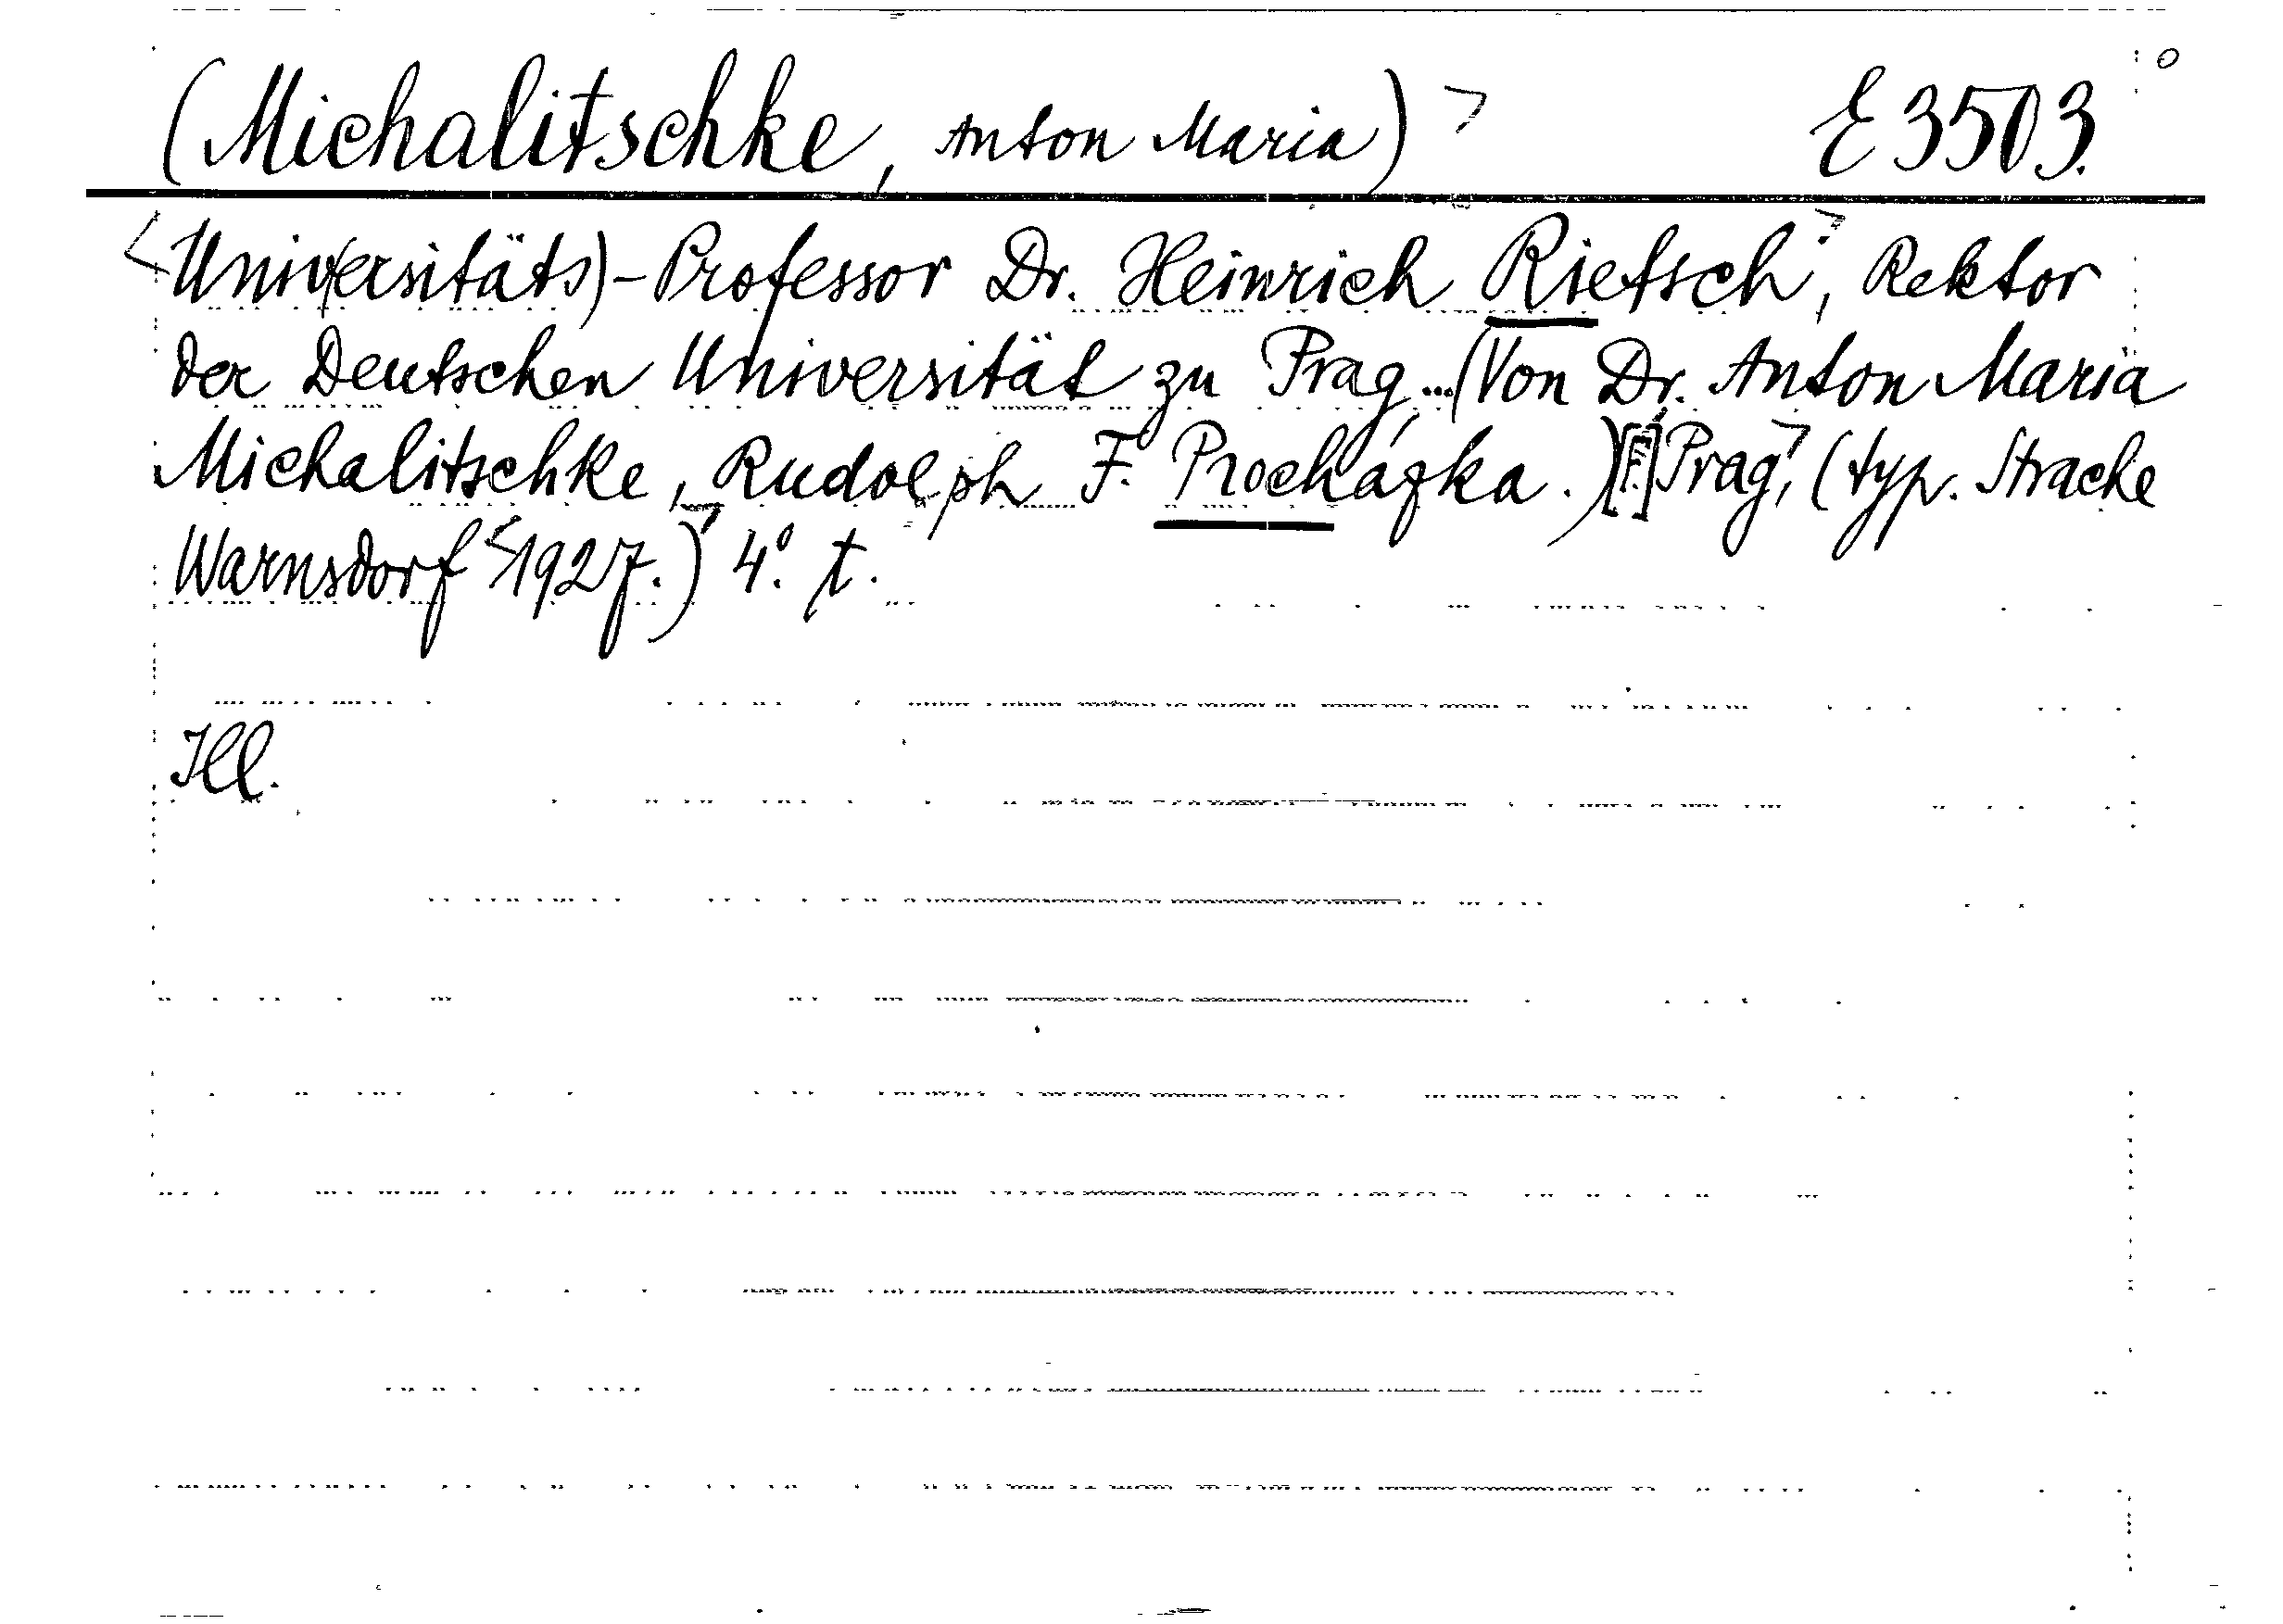 (Michalitschke, Anton Maria) E 3503.
Universitäts)-Professor Dr. Heinrich Rietsch, Rektor
der Deutschen Universität zu Prag...(Von Dr. Anton Maria
Michalitschke, Rudolph F. Procházka.) Prag, (typ. Strache
Warnsdorf 1927.) 4°. t.
Ill.